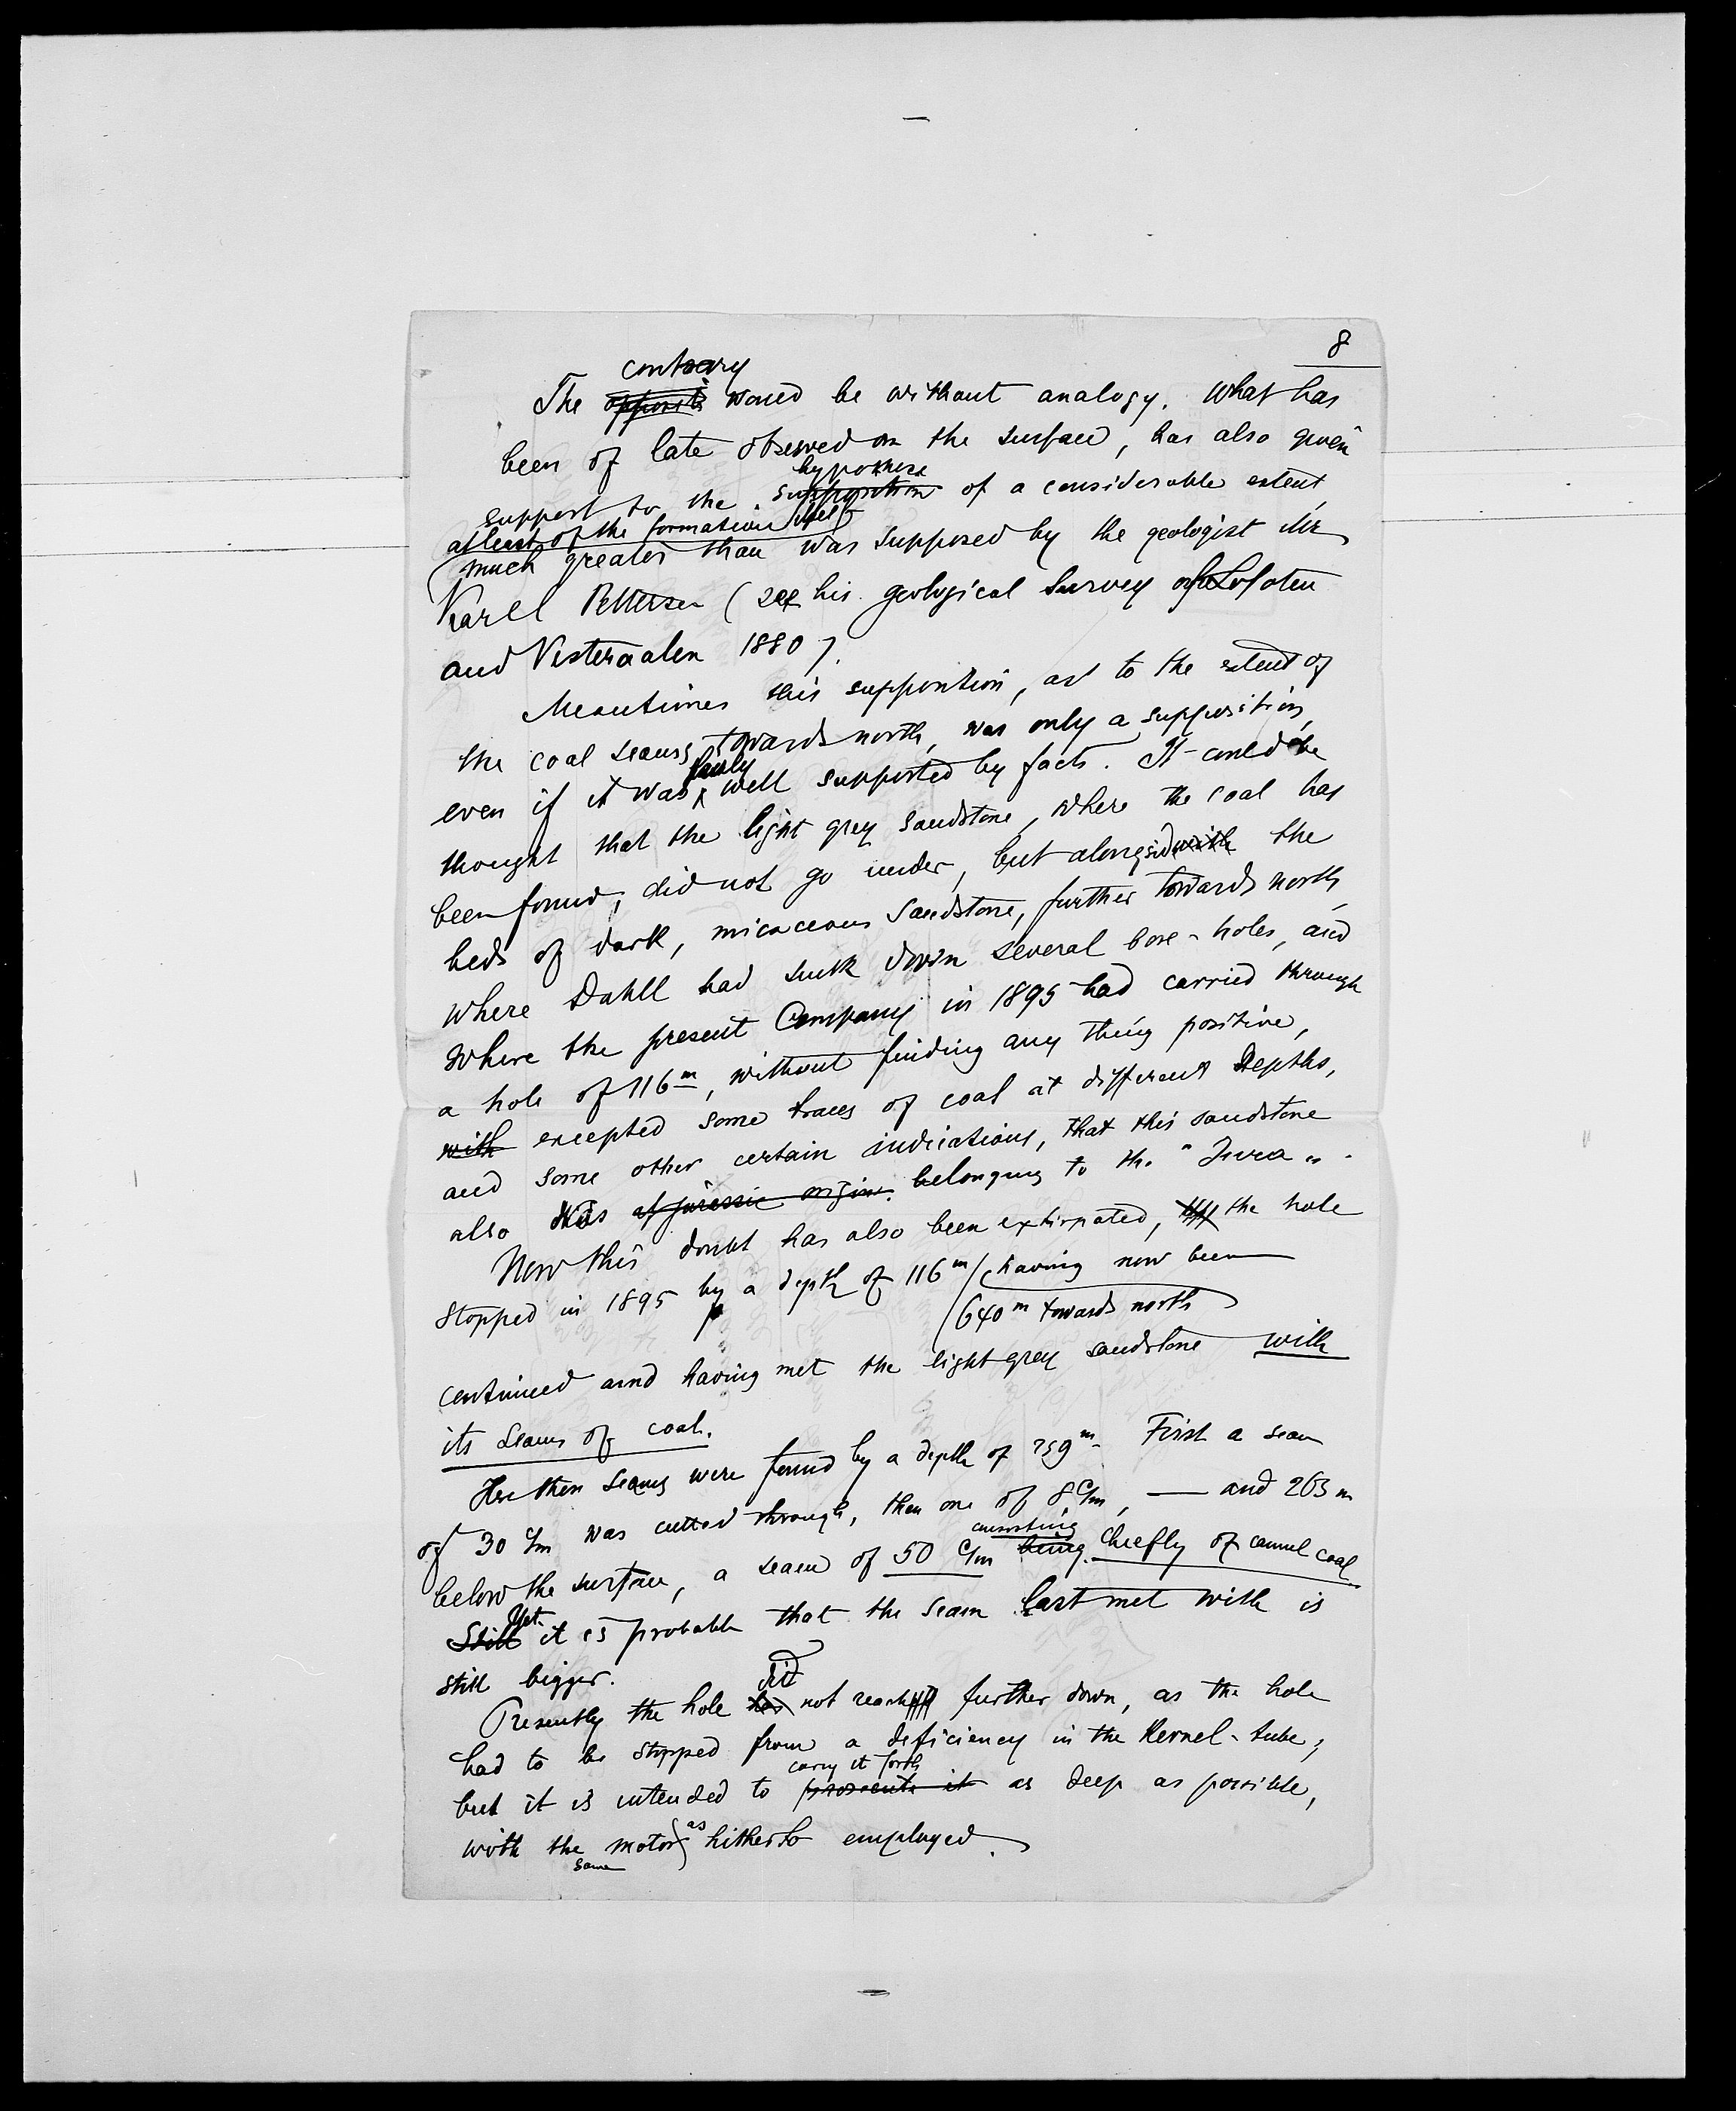 8
contrary
The opposite would be without analogy. What has
been of late observed on the surface, has also given
hypothese
support to the supposition of a considerable extent,
at least of the formation itself
much greater than was supposed by the geologist Mr
Karl Pettersen (see his geological Survey of Lofoten
and Vesteraalen 1880).
Meantimes this supposition, as to the extent of
the coal seams towards north, was only a supposition,
fairly
even if it was well supported by facts. It could be
thought that the light grey sandstone, where the coal has
been found, did not go under, but alongside with the
beds of dark, micaceous sandstone, further towards north,
where Dahll had sunk down several bore-holes, and
where the present Company in 1895 had carried through
a hole of 116 m, without finding any thing positive,
with excepted some traces of coal at different depths,
and some other certain indications, that this sandstone
also was of jurassic origin. belongung to the "Jura".
Now this doubt has also been extirpated, the hole
stopped in 1895 by a depth of 116 m having now been
640 m towards north
continued and having met the light grey sandstone with
its seams of coal.
Here then seams were found by a depth of 259 m. First a seam
of 30 c/m was cutted through, then one of 8 c/m, — and 263 m
consisting
below the surface, a seam of 50 c/m being cheefly of cannel coal
Yet
Still it is probable that the seam last met with is
still bigger.
did
Presently the hole has not reach further down, as the hole
had to be stopped from a deficiency in the Kernel-tube;
carry it forth
but it is intended to prosecute it as deep as possible,
as
with the motor hitherto employed.
same